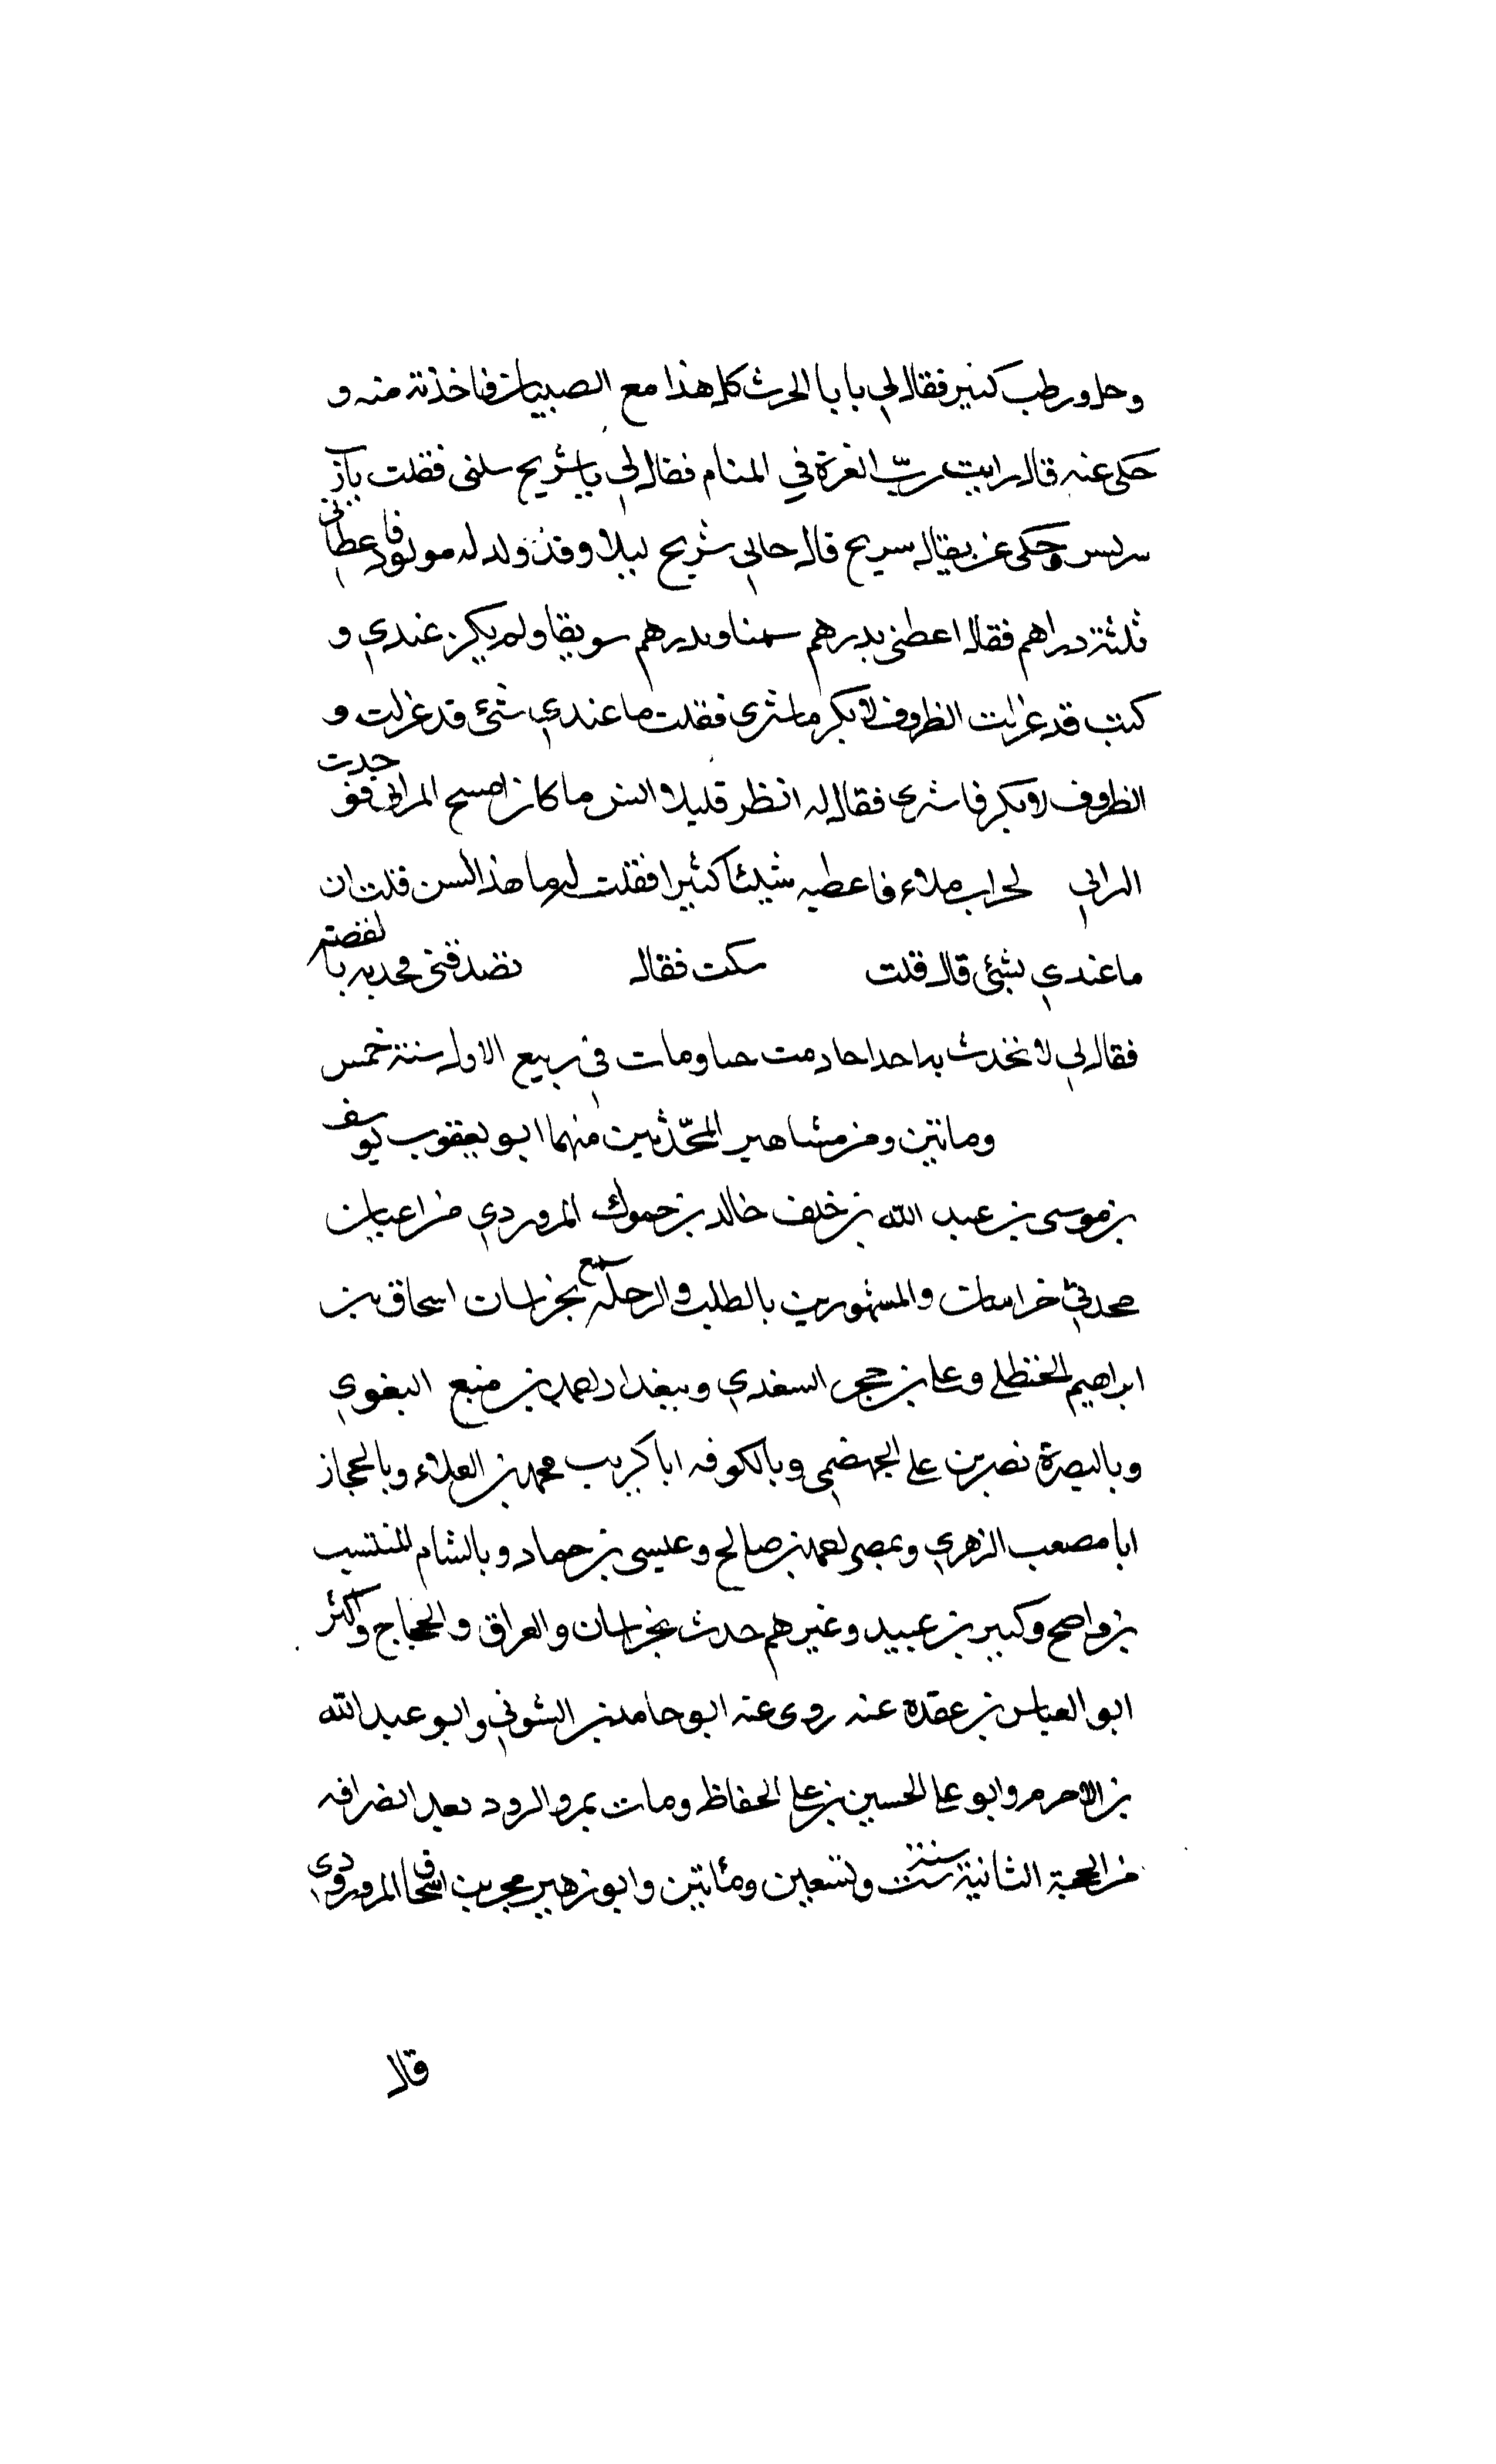 وحلو ورطب كثير فقال لي يا با الحرث كل هذا مع الصبيان فاخذته منه و
حكى عنه قال رايت رب العزة في المنام فقال لي يا شريح سلنى فقلت يارز
سربسر وحكى عن بقال سريح قال جاني شريح ليلا وقد ولد له مولود فاعطانى
ثلثة دراهم فقال اعطنى بدرهم سمنا وبدرهم سويقا ولم يكن عندي و
كنت قد عزلت الظروف لابكر ماشرى فقلت ما عندي شئ قد عزلت و
الظروف لابكر فاشرى فقال له انظر قليلا ايش ما كان امسح البرانى فوجدت
البراني لجراب ملاء فاعطيه شيئا كثيرا فقلت له ما هذا السن قلت ان
ما عندي بشئ قال قلت سكت فقال تصدقنى محديه بالفضة
فقال لي لا تحدث به احدا ما دمت حيا ومات في ربيع الاول سنة خمس
ومائتين ومن مشاهير المحّدثين منهما ابو يعقوب يوسف
بن موسى بن عبد الله بن خلف خالد بن حموك المروردي من اعيان
محدثي خراسان والمشهورين بالطلب والرحلة سمع بخراسان اسحاق بن
ابراهيم الحنظلى وعلى بن حجر السغدي وببغداد احمد بن منيع البغوي
وبالبصرة نصر بن على الجهضمى وبالكوفه ابا كريب محمد بن العلاء وبالحجاز
ابا مصعب الزهري وبمصر احمد بن صالح وعيسى بن حماد وبالشام المنتسيب
بن واضح وكبير بن عبيد وغيرهم حدث بخراسان والعراق والحجاج واكثر
ابو العباس بن عقدة عنه روى عنه ابو حامد بن الشوفي وابو عبد الله
بن الاحرم وابو على الحسين بن على الحفاظ ومات بمرو الرود بعد انصرافه
من الحجة الثانية سنة ست وتسعين ومائتين وابو زهير محرب اسحاق المروروذي
قال